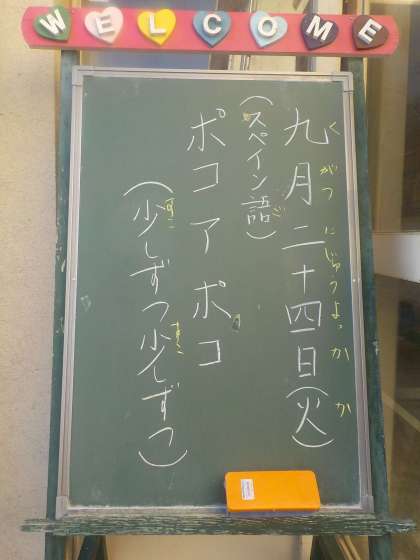 WELCOME
九月二十四日(火)
くがつにじゅうよっかか
(スペイン語)
ご
ポコアポコ
(少しずつ少しずつ)
すこ
すこ